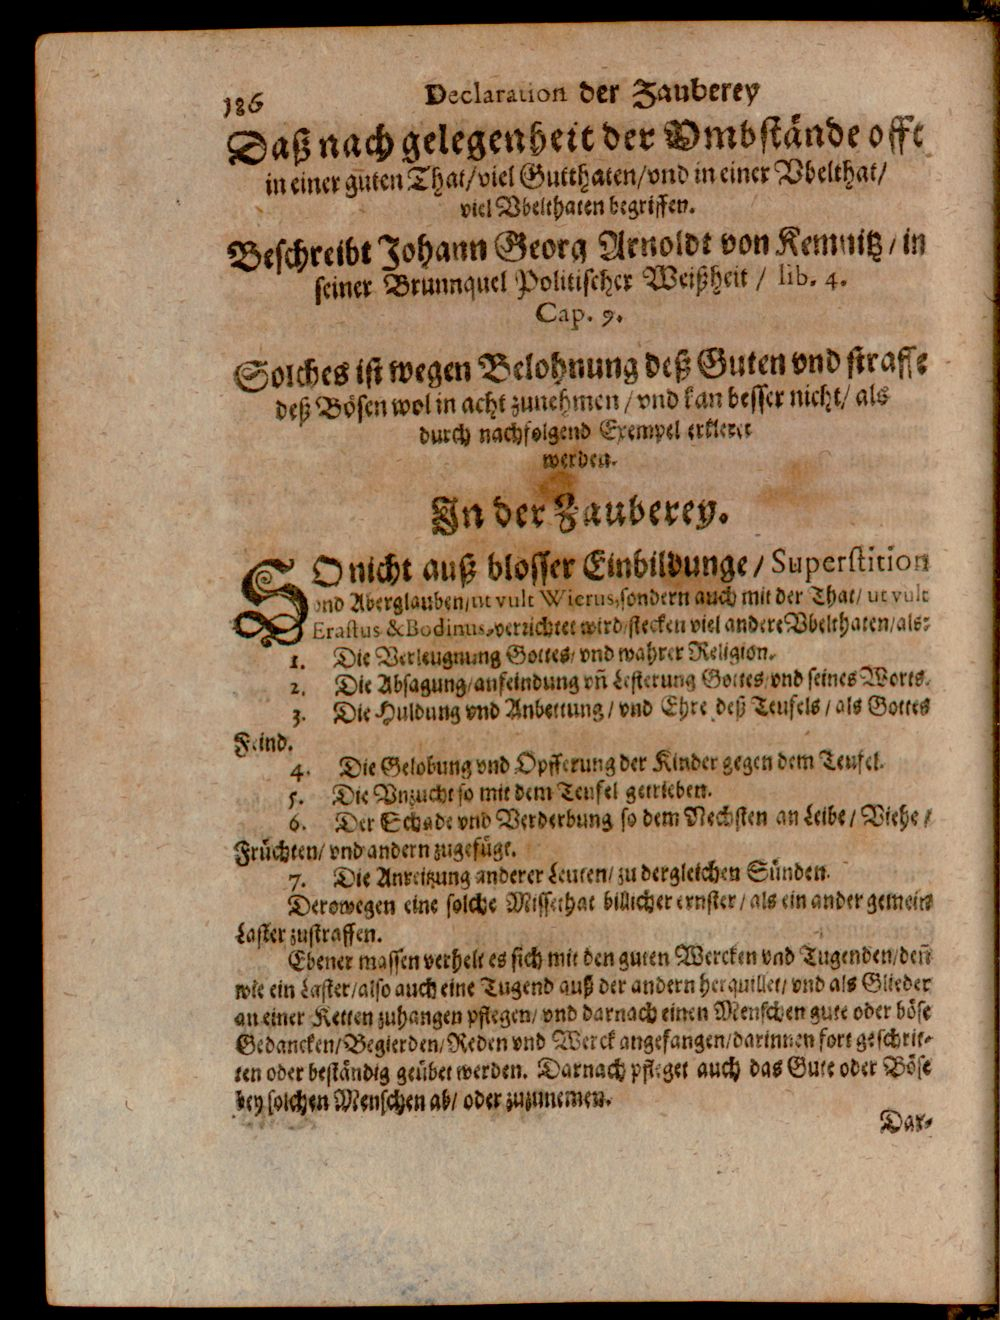 186 Declaration der Zauberey
Daß nach gelegenheit der Vmbstände offt
in einer guten That/viel Gutthaten/vnd in einer Vbelthat/
viel Vbelthaten begriffen.
Beschreibt Johann Georg Arnoldt von Kemnitz/in
seiner Brunnquel Politischer Weißheit / lib. 4.
Cap. 9.
Solches ist wegen Belohnung deß Guten vnd straffe
deß Bösen wol in acht zunehmen/vnd kan besser nicht/als
durch nachfolgend Exempel erkleret
werden.
In der Zauberey.
SO nicht auß blosser Einbildunge/Superstition
vnd Aberglauben/ut vult Wierus,sondern auch mit der That/ut vult
Erastus & Bodinus,verrichtet wird/stecken viel andere Vbelthaten/als:
1. Die Verleugnung Gottes/vnd wahrer Religion.
2. Die Absagung/anfeindung vñ Lesterung Gottes/vnd seines Worts.
3. Die Huldung vnd Anbettung/vnd Ehre deß Teufels/als Gottes
Feind.
4. Die Gelobung vnd Opfferung der Kinder gegen dem Teufel.
5. Die Vnzucht so mit dem Teufel getrieben.
6. Der Schade vnd Verderbung so dem Nechsten an Leibe/Viehe/
Früchten/vnd andern zugefüge.
7. Die Anreitzung anderer Leuten/zu dergleichen Sünden.
Derowegen eine solche Missethat billicher ernster/als ein ander gemeine
Laster zustraffen.
Ebener massen verhelt es sich mit den guten Wercken vnd Tugenden/deñ
wie ein Laster/also auch eine Tugend auß der andern herquillet/vnd als Glieder
an einer Ketten zuhangen pflegen/vnd darnach einen Menschen gute oder böse
Gedancken/Begierden/Reden vnd Werck angefangen/darinnen fort geschrit-
ten oder beständig geübet werden. Darnach pfleget auch das Gute oder Böse
bey solchen Menschen ab/oder zuzunemen.
Dar-